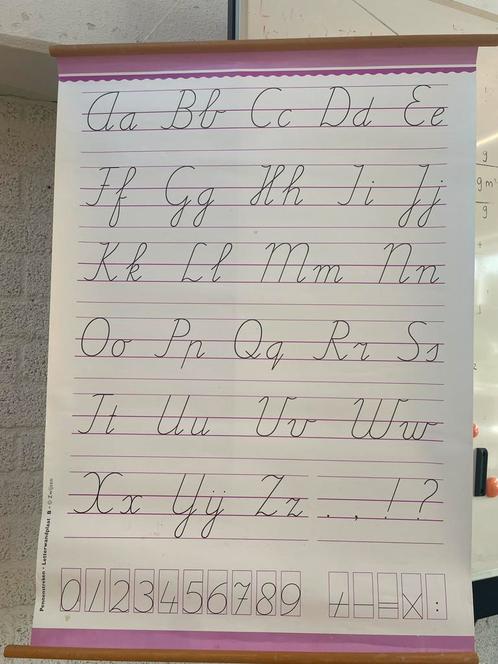 Aa Bb Cc Dd Ee
Ff Gg Hh Ii Jj
Kk Ll Mm Nn
Oo Pp Qq Rr Ss
Tt Uu Vv Ww
Xx IJij Zz . , ! ?
0 1 2 3 4 5 6 7 8 9 + - = X :
Pennenstreken • Letterwandplaat B • © Zwijsen
g
g m
g